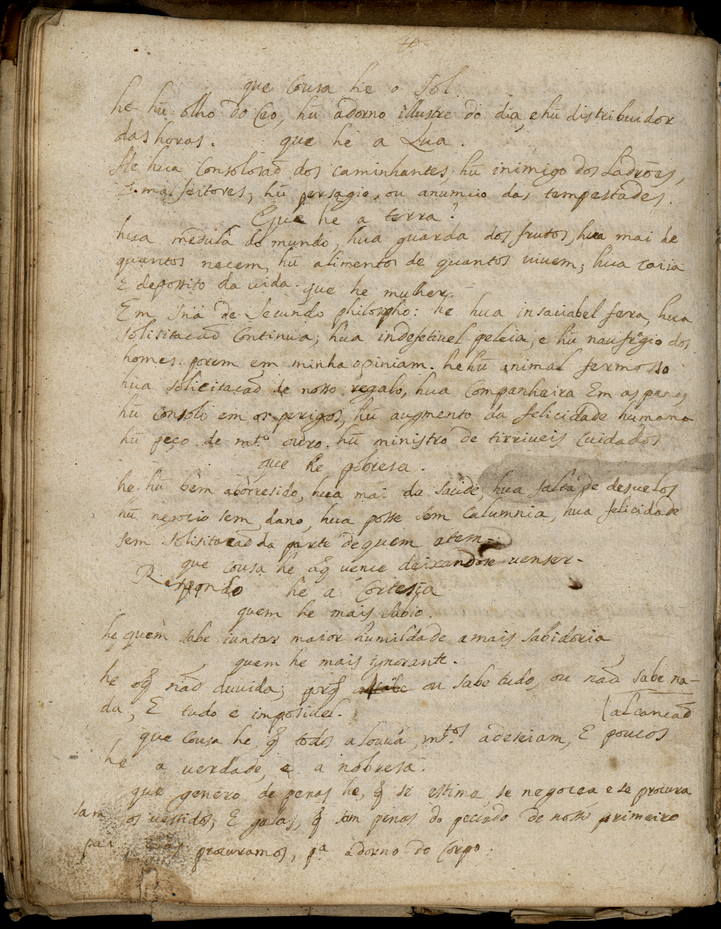 que Cousa he o Sol.
he hũ olho do Ceo, hũ adorno illustre do dia, e hũ distribuidor
das horas. que he a Lua.
He hua Consolosaõ dos caminhantes hũ inimigo dos Ladrões,
E mal feitores, hũ persagio, ou anuncio das tempestades.
E que he a terra?
hua medula do mundo, hua guarda dos frutos, hua mai de
quantos nacem, hũ alimento de quantos vivem; hua
E deposito da vida. que he mulher.
Em de Secundo philosopho: he hua insaciabel fera, hua
solisitacaõ Continua; hua peleia, e hũ naufragio dos
homes. porem em minha opiniam. he hũ animal fermoso
hua solicitacaõ de nosso regalo, hua Companheira Em as penas
hũ consolo em os perigos, hũ augmento da felicidade humana
hũ peço de mtº ouro. hũ ministro de tirriveis Cuidados
que he pobresa.
he hũ bem aborresido, hua mai da saude, hua falta de desuelos
hũ negocio sem dano, hua posse sem Calumnia, hua felicidade
sem solisitacaõ da parte de quem atem
que cousa he a q̃ vence deixandose venser.
Respondo he a Cortesia
quem he mais sabio.
he quem sabe iuntar maior humildade a mais sabidoria
quem he mais ignorante.
he o q̃ naõ duvida; porq̃ ou sabe tudo, ou naõ sabe na-
da, E tudo e imposivel. (alcancaõ
que cousa he q̃ todos a louvã, mtos adeseiam, E poucos
he a verdade, e a nobresa.
que genero de penas he, q̃ se estima, se negocea e se procura
sam os vestidos, E galas, q̃ em penas do peccado de nosso primeiro
pai, procuramos, pª adorno do Corpo.